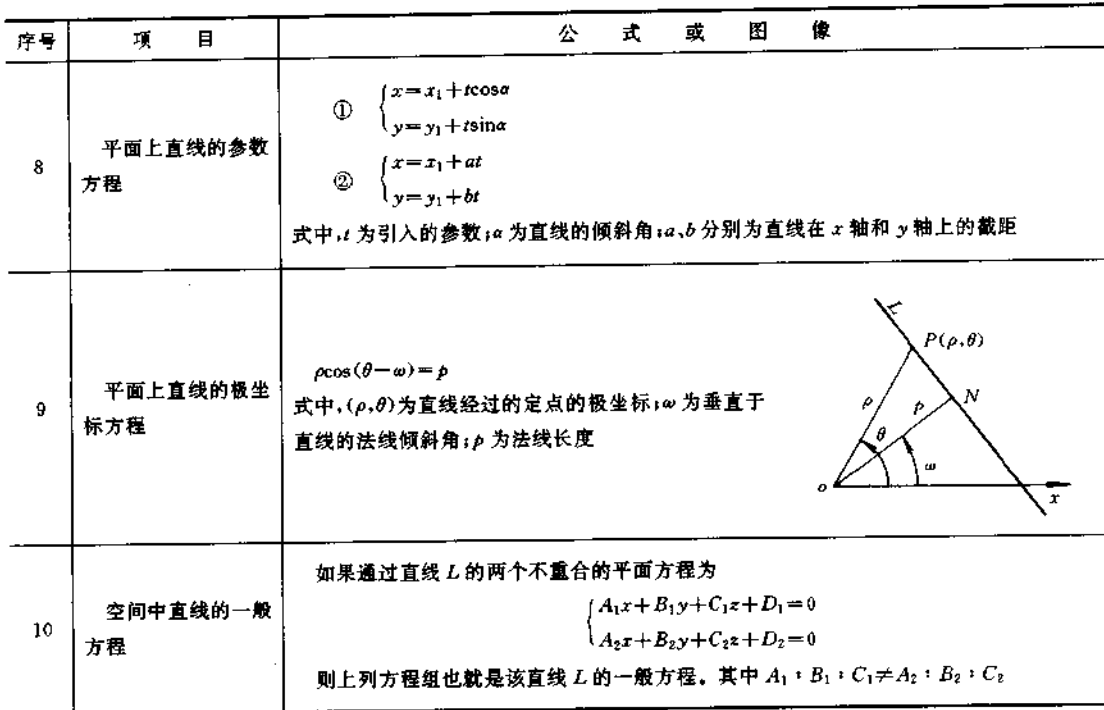 序号 项 目 公 式 或 图 像
8 平面上直线的参数方程
① { x=x₁+tcosα
y=y₁+tsinα
② { x=x₁+at
y=y₁+bt
式中,t 为引入的参数;α 为直线的倾斜角;a、b 分别为直线在 x 轴和 y 轴上的截距
9 平面上直线的极坐标方程
ρcos(θ−ω)=p
式中,(ρ,θ)为直线经过的定点的极坐标;ω 为垂直于
直线的法线倾斜角;p 为法线长度
L
P(ρ,θ)
ρ p N
θ
ω
o x
10 空间中直线的一般方程
如果通过直线 L 的两个不重合的平面方程为
{ A₁x+B₁y+C₁z+D₁=0
A₂x+B₂y+C₂z+D₂=0
则上列方程组也就是该直线 L 的一般方程。其中 A₁:B₁:C₁≠A₂:B₂:C₂